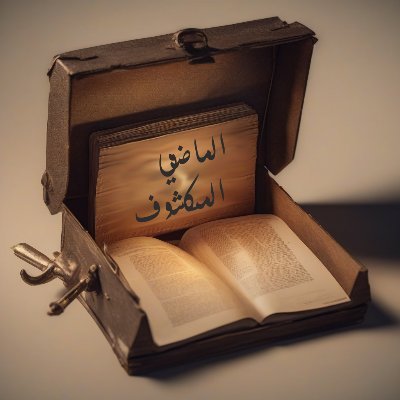 الماضي
المكشوف